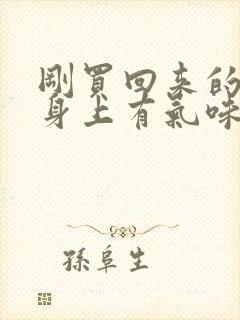 剛買回来的
身上有氣味
孫阜生